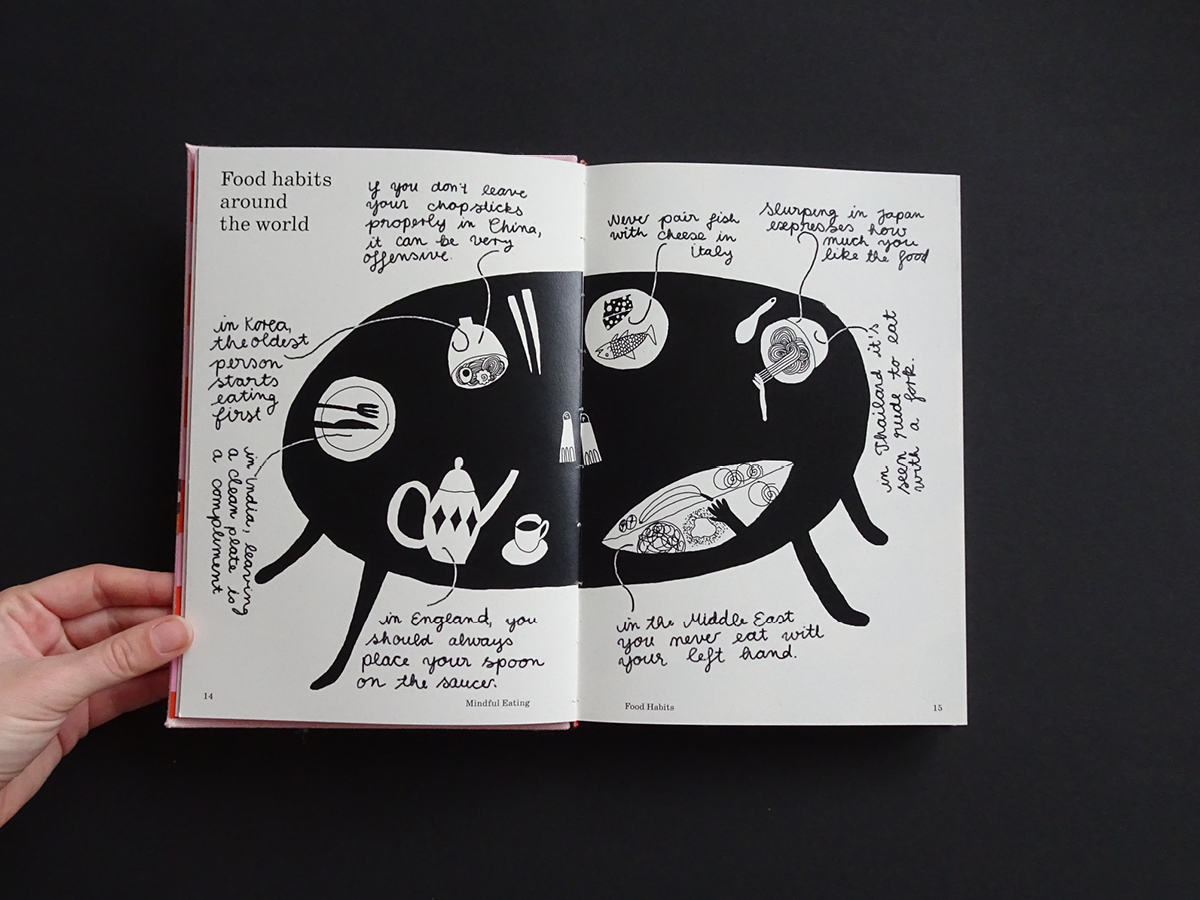 Food habits
around
the world
If you don't leave
your chopsticks
properly in China,
it can be very
offensive.
in Korea,
the oldest
person
starts
eating
first
in India, leaving
a clean plate is
a compliment
in England, you
should always
place your spoon
on the saucer.
14
Mindful Eating
Never pair fish
with cheese in
italy
Slurping in Japan
expresses how
much you
like the food
in Thailand it's
seen rude to eat
with a fork.
in the Middle East
you never eat with
your left hand.
Food Habits
15